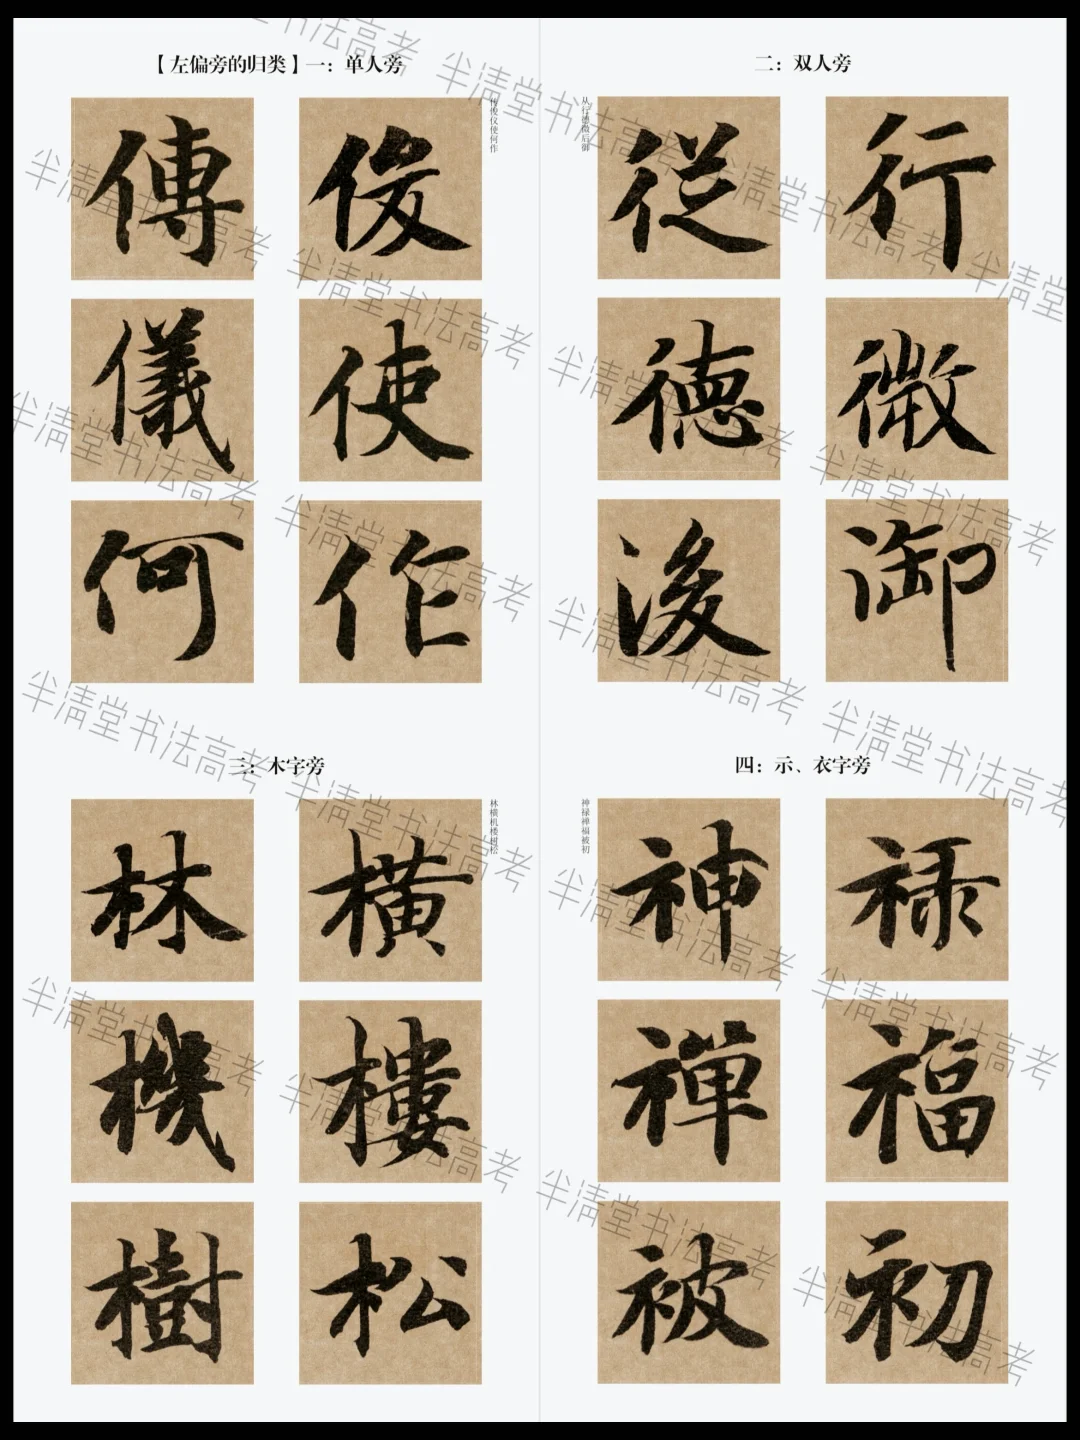 【左偏旁的归类】一：单人旁
傳 俊
儀 使
何 作
传俊仪使何作
二：双人旁
從 行
德 微
後 御
从行德微后御
三：木字旁
林 横
機 樓
樹 松
林横机楼树松
四：示、衣字旁
神 禄
禪 福
被 初
神禄禅福被初
半清堂书法高考